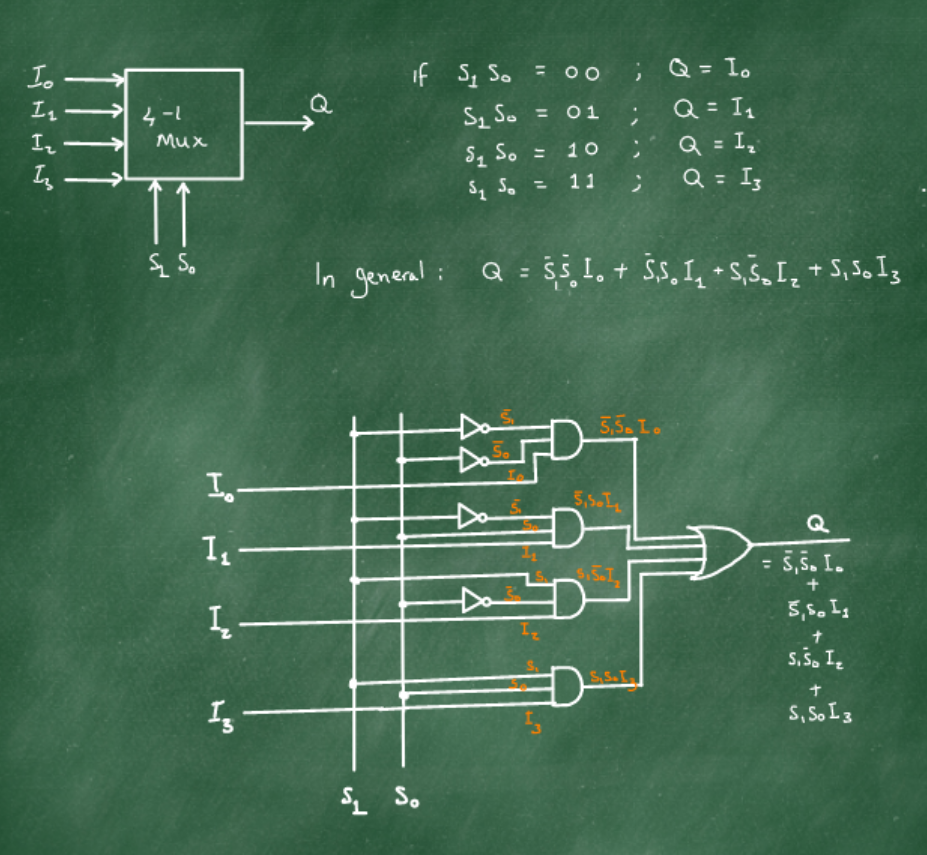 I₀
I₁
I₂
I₃
4-1
Mux
Q
S₁ S₀
if S₁ S₀ = 00 ; Q = I₀
S₁ S₀ = 01 ; Q = I₁
S₁ S₀ = 10 ; Q = I₂
S₁ S₀ = 11 ; Q = I₃
In general : Q = S̄₁S̄₀I₀ + S̄₁S₀I₁ + S₁S̄₀I₂ + S₁S₀I₃
S̄₁
S̄₀
I₀
S̄₁S̄₀I₀
I₀
S̄₁
S₀
I₁
S̄₁S₀I₁
I₁
S₁
S̄₀
I₂
S₁S̄₀I₂
I₂
S₁
S₀
I₃
S₁S₀I₃
I₃
S₁ S₀
Q
= S̄₁S̄₀I₀
+
S̄₁S₀I₁
+
S₁S̄₀I₂
+
S₁S₀I₃